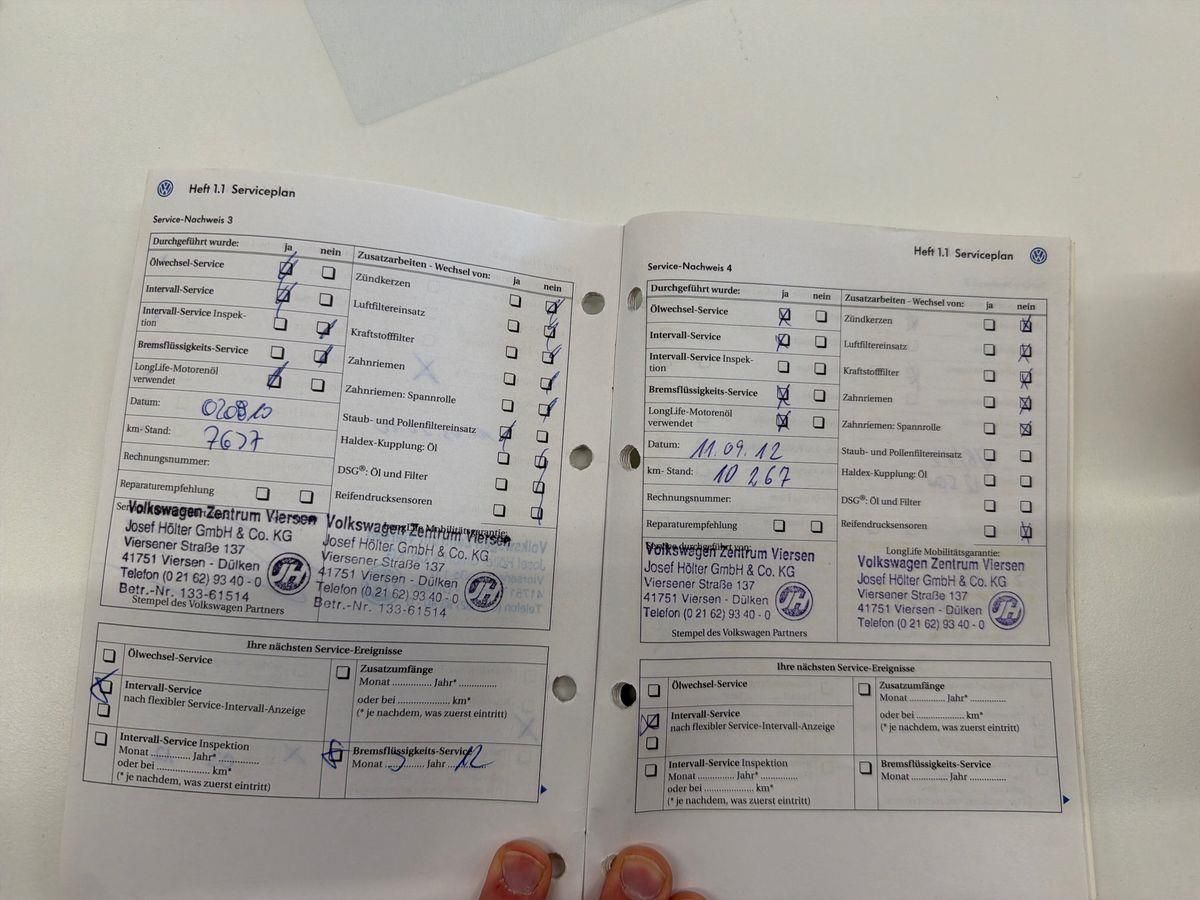 Heft 1.1 Serviceplan
Service-Nachweis 3
Durchgeführt wurde: ja nein
Ölwechsel-Service
Intervall-Service
Intervall-Service Inspek-
tion
Bremsflüssigkeits-Service
LongLife-Motorenöl
verwendet
Datum:
km- Stand: 7677
Rechnungsnummer:
Reparaturempfehlung
Zusatzarbeiten - Wechsel von: ja nein
Zündkerzen
Luftfiltereinsatz
Kraftstofffilter
Zahnriemen
Zahnriemen: Spannrolle
Staub- und Pollenfiltereinsatz
Haldex-Kupplung: Öl
DSG®: Öl und Filter
Reifendrucksensoren
Volkswagen Zentrum Viersen
Josef Hölter GmbH & Co. KG
Viersener Straße 137
41751 Viersen - Dülken
Telefon (0 21 62) 93 40 - 0
Betr.-Nr. 133-61514
Stempel des Volkswagen Partners
LongLife Mobilitätsgarantie:
Volkswagen Zentrum Viersen
Josef Hölter GmbH & Co. KG
Viersener Straße 137
41751 Viersen - Dülken
Telefon (0 21 62) 93 40 - 0
Betr.-Nr. 133-61514
Ihre nächsten Service-Ereignisse
Ölwechsel-Service
Intervall-Service
nach flexibler Service-Intervall-Anzeige
Intervall-Service Inspektion
Monat ............ Jahr* ............
oder bei ..................... km*
(* je nachdem, was zuerst eintritt)
Zusatzumfänge
Monat ............ Jahr* ............
oder bei ..................... km*
(* je nachdem, was zuerst eintritt)
Bremsflüssigkeits-Service
Monat ............ Jahr 12
Heft 1.1 Serviceplan
Service-Nachweis 4
Durchgeführt wurde: ja nein
Ölwechsel-Service
Intervall-Service
Intervall-Service Inspek-
tion
Bremsflüssigkeits-Service
LongLife-Motorenöl
verwendet
Datum: 11.09.12
km- Stand: 10 267
Rechnungsnummer:
Reparaturempfehlung
Zusatzarbeiten - Wechsel von: ja nein
Zündkerzen
Luftfiltereinsatz
Kraftstofffilter
Zahnriemen
Zahnriemen: Spannrolle
Staub- und Pollenfiltereinsatz
Haldex-Kupplung: Öl
DSG®: Öl und Filter
Reifendrucksensoren
Volkswagen Zentrum Viersen
Josef Hölter GmbH & Co. KG
Viersener Straße 137
41751 Viersen - Dülken
Telefon (0 21 62) 93 40 - 0
Stempel des Volkswagen Partners
LongLife Mobilitätsgarantie:
Volkswagen Zentrum Viersen
Josef Hölter GmbH & Co. KG
Viersener Straße 137
41751 Viersen - Dülken
Telefon (0 21 62) 93 40 - 0
Ihre nächsten Service-Ereignisse
Ölwechsel-Service
Intervall-Service
nach flexibler Service-Intervall-Anzeige
Intervall-Service Inspektion
Monat ............ Jahr* ............
oder bei ..................... km*
(* je nachdem, was zuerst eintritt)
Zusatzumfänge
Monat ............ Jahr* ............
oder bei ..................... km*
(* je nachdem, was zuerst eintritt)
Bremsflüssigkeits-Service
Monat ............ Jahr ............